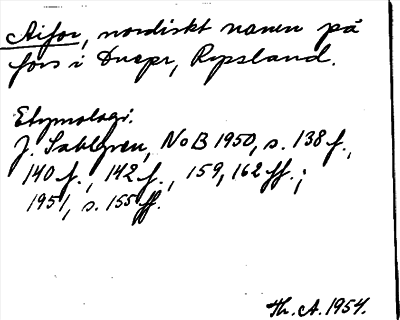 Aifor, nordiskt namn på
fors i Dnepr, Ryssland.
Etymologi.
J. Sahlgren, NoB 1950, s. 138 f.,
140 f., 142 f., 159, 162 ff.;
1951, s. 155 ff.
Th. A. 1954.